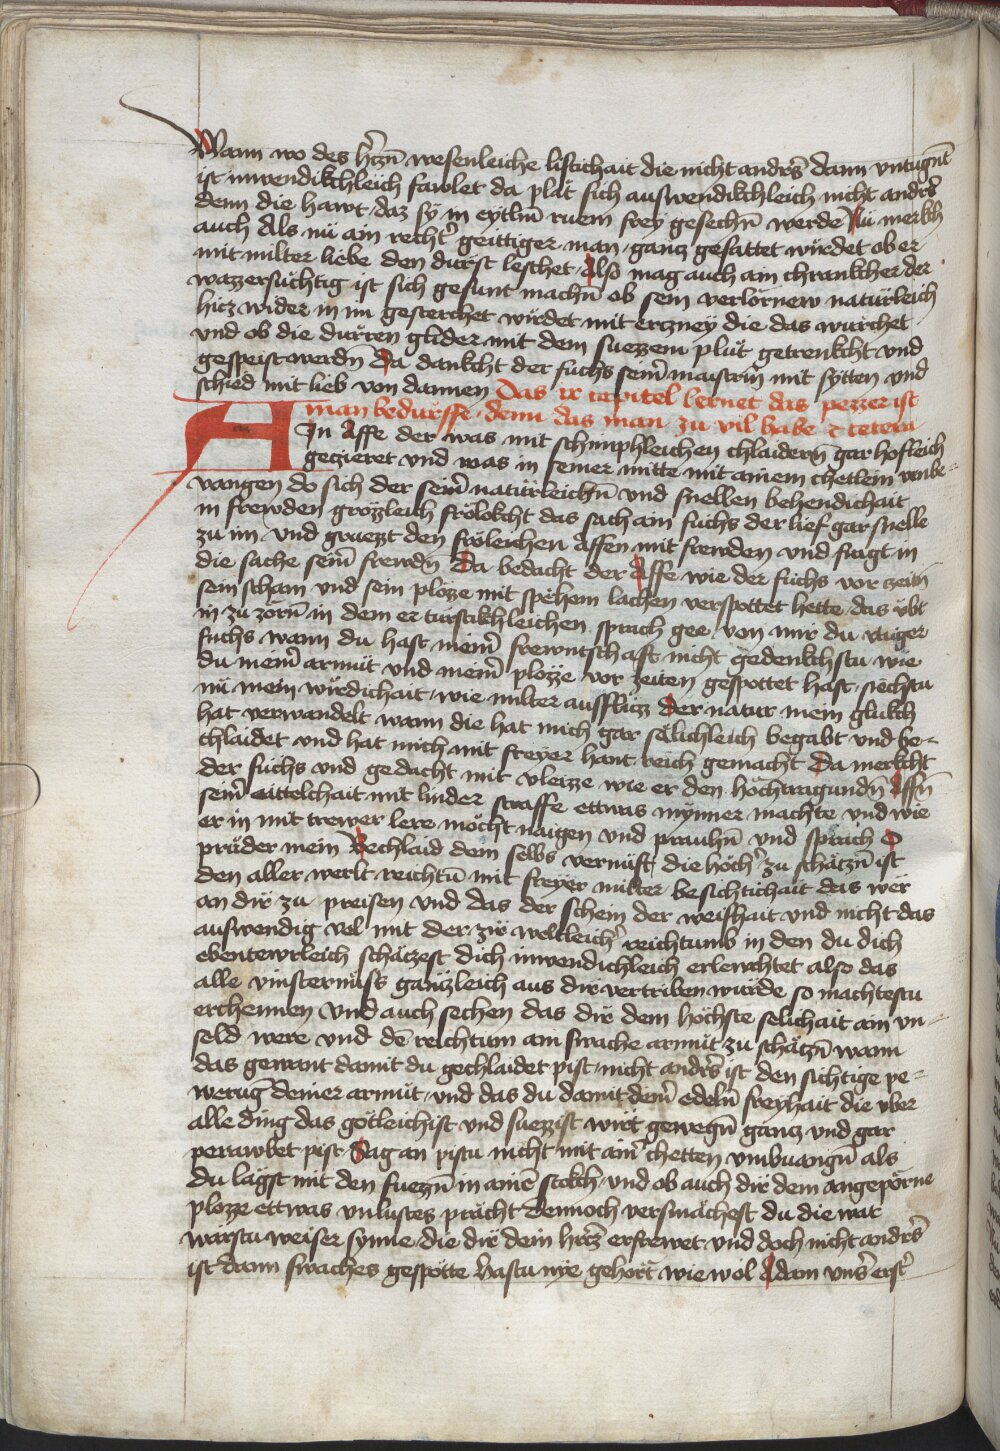 Wann wo des hˀczn̄ wesenleiche listichait die nicht andrˢ dann vntugnt̄
ist inwendikchleich fawlet da plat sich auswendikchleich nicht andˢ
denn die hawt daz sy in eytlm̄ ruem frey gesechn̄ werde Nu merkch
auch Als nu ain rechtˀ geittiger man ganncz gesattet würdet ob er
mit milter liebe den durst leschet Also mag auch ain chrankcher der
wazzersuchtig ist sich gesunt machn̄ ob sein verlornew naturleich
hicz wider in im gesterchet würdet mit erczney die das würchet
vnd ob die durren glider mit dem suezzem plut getrenkcht vnd
gespeist werdn̄ Da dankcht der fuchs seim̄ maistrn̄ mit sytten vnd
schied mit lieb von dannen Das ix capitel lernet das pezzer ist
man bedurffe denn das man zu vil habe ⁊ cetera
AIn Affe der was mit schimphleichen chlaidern̄ gar hofleich
geczieret vnd was in seiner mitte mit ainem chetlein vmbe-
vangen do sich der seim̄ naturleichn̄ vnd snellen behendichait
in frewden grozleich frolokcht das sach ain fuchs der lief gar snelle
zu im vnd gruezt den froleichen Affen mit frewden vnd fragt in
die sache seim̄ frewdn̄ Da bedacht der Affe wie der fuchs vor zeitn̄
sein scham vnd sein plozze mit spehem lachen verspottet hette das übt
in zu zorn̄ in dem er turstikhleichen sprach gee von mir du vaiger
fuchs wann du hast meim̄ frewntschaft nicht gedenkchstu wie
du meim̄ armut vnd meim̄ plozze vor zeiten gespottet hast siechstu
nu mein würdichait wie milter ausffluz der natur mein glukch
hat verwandelt wann die hat mich gar sälichleich begabt vnd be-
chlaidet vnd hat mich mit freyer hant reich gemacht Da merkcht
der fuchs vnd gedacht mit vleizze wie er den hochtragundn̄ Affn̄
seim̄ eittelchait mit linder straffe ettwas mynner machte vnd wie
er in mit trewer lere mocht naigen vnd prauhn̄ vnd sprach O
pruder mein Bechlaid dein selbs vernuft die hochˀ zu schatzn̄ ist
den aller werlt reichtum̄ mit freyer milter besichtichait das wer
an dir zu preisen vnd das der schein der weishait vnd nicht das
auswendig vel mit der zir weltleichˀ reichtumb in den du dich
ebentewrleich schaczest dich inwendichleich erlewchtet also das
alle vinsternuss gänzleich aus dir vertriben würde so machtestu
erchennen vnd auch sechen das dir dem hochste selichait ain vn-
seld were vnd dē reichtum ain swache armut zu schatzn̄ wann
das gewant damit du gechlaidet pist nicht andrˢ ist den sichtige pe-
weruḡ deiner armut vnd das du damit deim̄ edeln̄ freyhait die vber
alle ding das gotleichist vnd suezzist wirt gewegn̄ gancz vnd gar
perawbet pist Sag an pistu nicht mit aim̄ chetten vmbuangn̄ als
du lagst mit den fuezzn̄ in ainē stokch vnd ob auch dir dem angeporne
plozze ettwas vnlustes pracht dennoch versmachest du die wat
warstu weiser synne die dir dein hˀcz erfrewet vnd doch nicht andrˢ
ist dann swaches gespotte hastu nye gehort wie wol Adam vnsˀ erstˀ